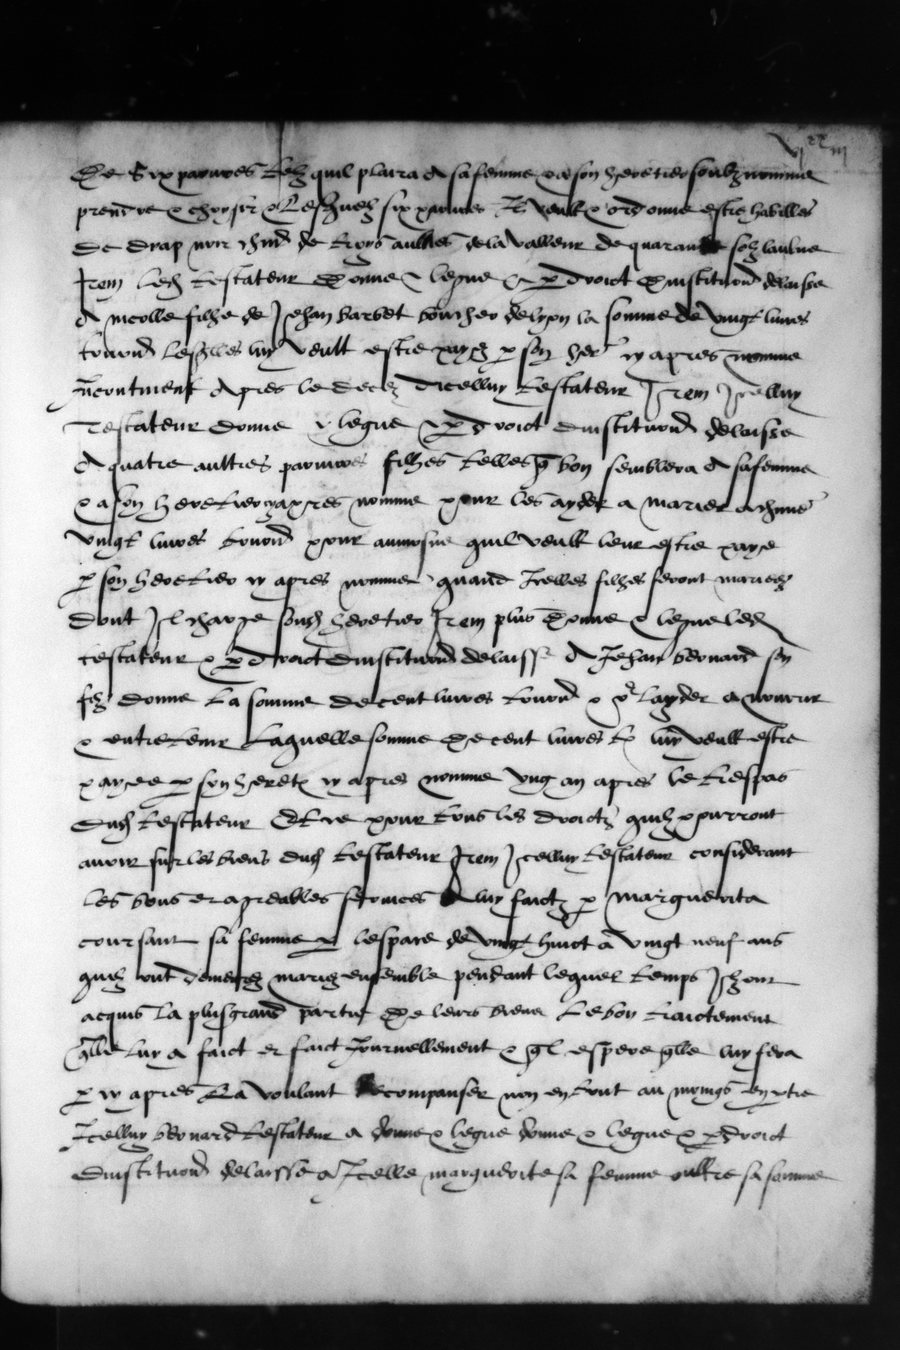 vi xx iii
De Six pauvres telz quil plaira a sa femme & a son heretier soubz nomme
prendre & choysir & Lesquelz six pauvres Il veult & ordonne estre habilles
de drap noir chūn de troys aulnes de la valleur de quarante solz laulne
Item led testateur donne & legue & p droict dinstitution delaisse
A nicolle filhe de Jehan barbet boucher de lyon la somme de vingt livres
tourn Lesqlles luy veult estre paye p son her cy apres nomme
Incontinent Apres le decez dicelluy testateur Item Icelluy
Testateur donne & legue & p droict dinstitution delaisse
A quatre aultres pauvres filhes telles q bon semblera A sa femme
& a son heretier cy apres nomme pour les ayder a marier a chūne
vingt livres tourn pour aumosne quil veult leur estre paye
p son heretier cy apres nomme quand Icelles filhes seront mariees
dont Il charge sond heretier Item plus donne & legue led
testateur & p droict dinstitution delaisse A Jehan bernard son
filz donne La somme de cent livres tourn & pr layder a nourrir
& entretenir Laquelle somme de cent livres tz luy veult estre
payee p son heretz cy apres nomme ung an apres le trespas
dud testateur Et ce pour tous les droictz quilz pourront
avoir sur les biens dud testateur Item Icelluy testateur considerant
les bons et agreables services A luy faictz p marguerita
coursant sa femme & lespace de vingt huict a vingt neuf ans
quilz ont demeurez mariez ensemble pendant lequel temps Ilz ont
acquis la plus grand partie de leurs biens Le bon traictement
qlle luy a faict et faict Journellement & ql espere qlle luy fera
p cy apres La voulant Recompanser non en tout au moings en ptie
Icelluy bernard testateur a donne & legue donne & legue & p droict
dinstitution delaisse a Icelle marguerite sa femme oultre sa somme